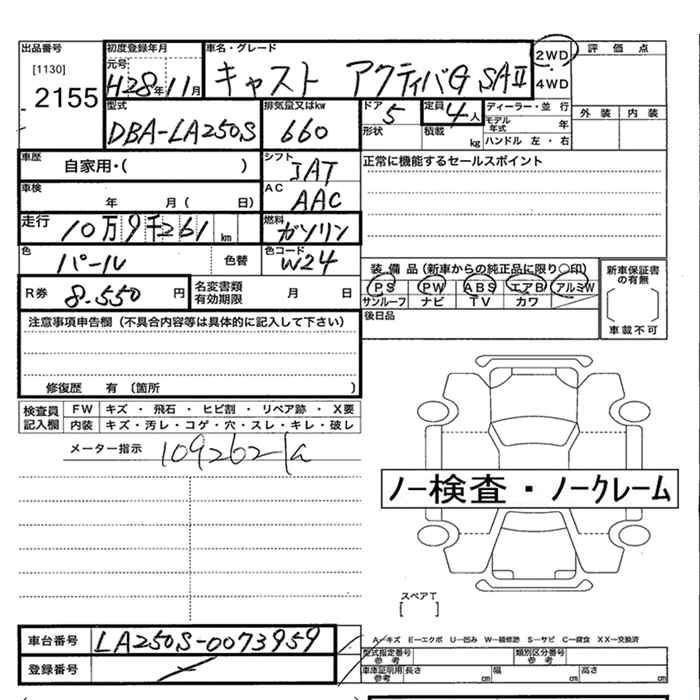 出品番号 初度登録年月 車名・グレード 2WD・4WD 評価点
[1130] 元号 H28年11月 キャスト アクティバG SAⅡ
2155
型式 排気量又はkw ドア 5 定員 4人 ディーラー・並行 外装 内装
DBA-LA250S 660 形状 積載 kg モデル年式 年 ハンドル 左・右
車歴 自家用・( ) シフト IAT 正常に機能するセールスポイント
車検 年 月( 日) AC AAC
走行 10万9千261km 燃料 ガソリン
色 パール 色替 色コード W24
装備品(新車からの純正品に限り○印) 新車保証書の有無
R券 8.550円 名変書類有効期限 月 日 PS PW ABS エアB アルミW
サンルーフ ナビ TV カワ 車載不可
注意事項申告欄(不具合内容等は具体的に記入して下さい) 後日品
修復歴 有(箇所 )
検査員記入欄 FW キズ・飛石・ヒビ割・リペア跡・X要
内装 キズ・汚レ・コゲ・穴・スレ・キレ・破レ
メーター指示 109262
ノー検査・ノークレーム
スペアT
[ ]
車台番号 LA250S-0073959 A-キズ E-エクボ U-凹み W-補修跡 S-サビ C-腐食 XX-交換済
登録番号 型式指定番号 参考 類別区分番号 参考
車庫証明用参考 長さ cm 幅 cm 高さ cm